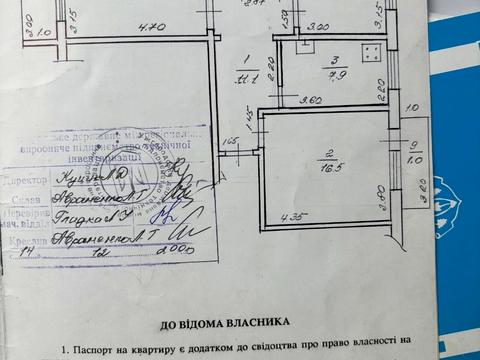 2.87
3.00 1.0 3.15 4.70 1.50 3.00 3.15
1
11.1
2.20
3
7.9
2.20
3.60
1.45
1.65
1.0
2
16.5
9
1.0
3.80
3.20
4.35
виробниче підприємство технічної
інвентаризації
Директор
Склав Авраменко Л.Т.
Перевірив
нач. відділу Гладка
Креслив Авраменко Л.Т.
14 12 2000
ДО ВІДОМА ВЛАСНИКА
1. Паспорт на квартиру є додатком до свідоцтва про право власності на